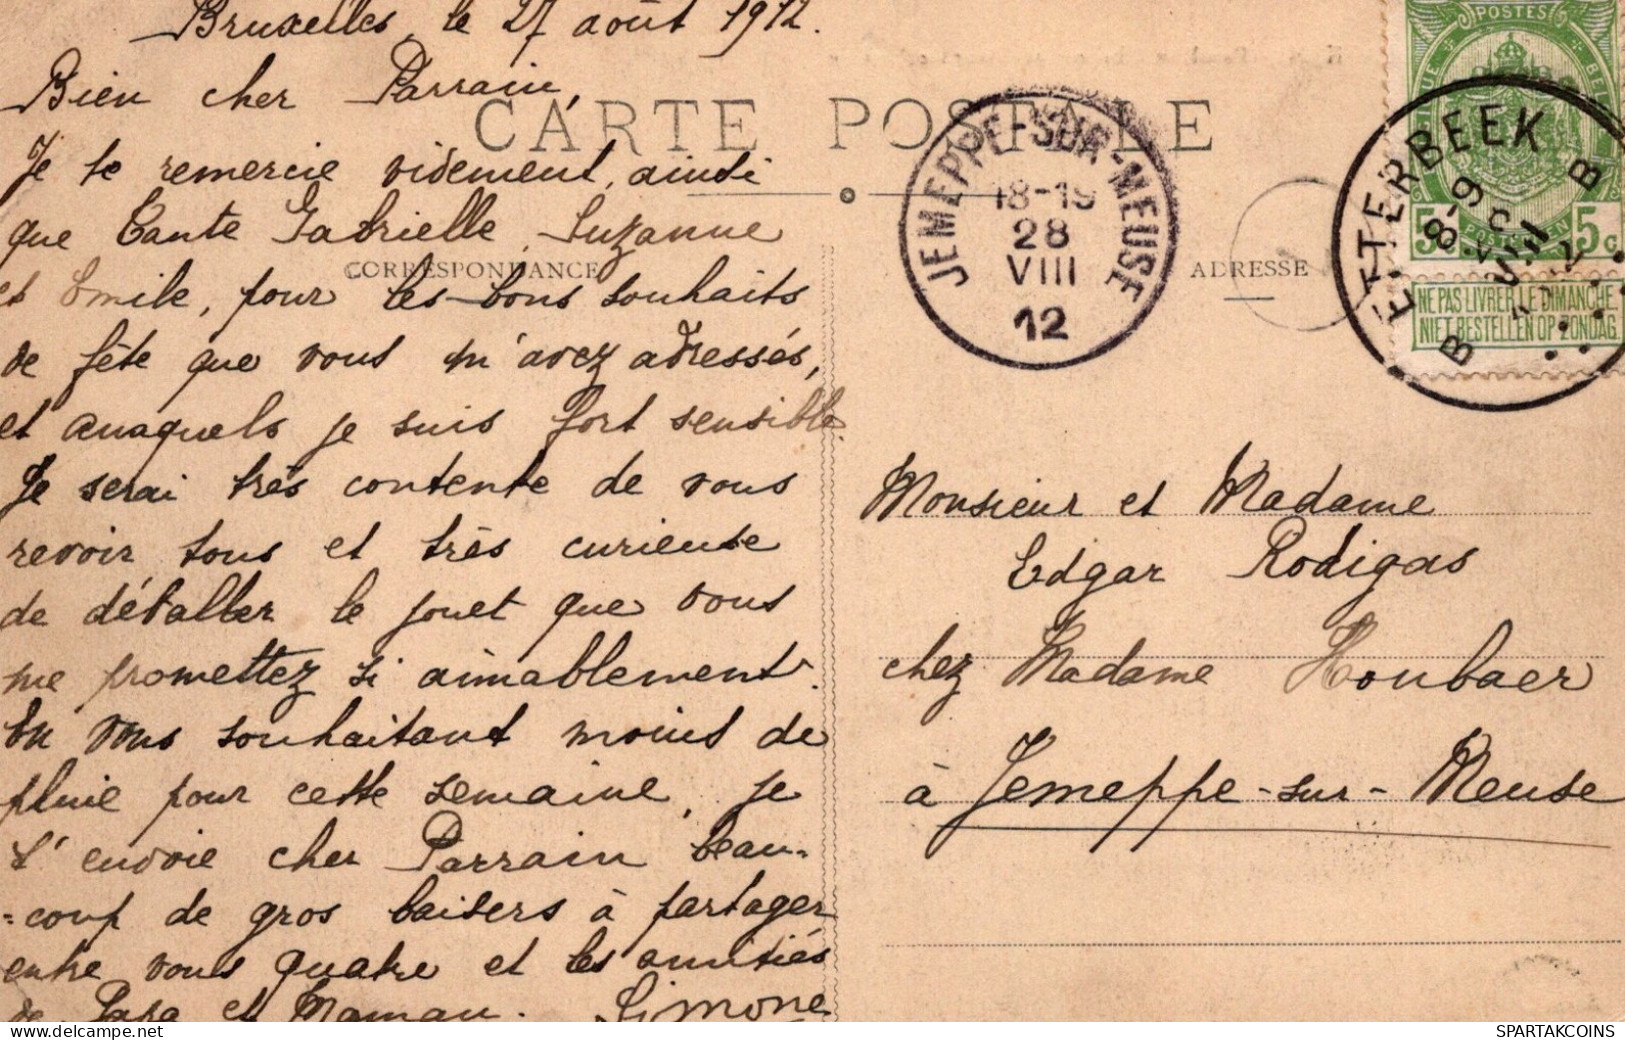 Bruxelles, le 27 août 1912.
Bien cher Parrain,
Je te remercie vivement, ainsi
que Tante Gabrielle, Suzanne
et Emile, pour les bons souhaits
de fête que vous m'avez adressés,
et auxquels je suis fort sensible.
Je serai très contente de vous
revoir tous et très curieuse
de déballer le jouet que vous
me promettez si aimablement.
En vous souhaitant moins de
pluie pour cette semaine, je
t'envoie cher Parrain beau-
=coup de gros baisers à partager
entre vous quatre et les amitiés
de Papa et Maman. Simone
CARTE POSTALE
CORRESPONDANCE
ADRESSE
JEMEPPE-SUR-MEUSE
18-19
28
VIII
12
POSTES
5 POSTERIJEN 5c
NE PAS LIVRER LE DIMANCHE
NIET BESTELLEN OP ZONDAG
ETTERBEEK
8-9
B B
Monsieur et Madame
Edgar Rodigas
chez Madame Houbaer
à Jemeppe-sur-Meuse
SPARTAKCOINS